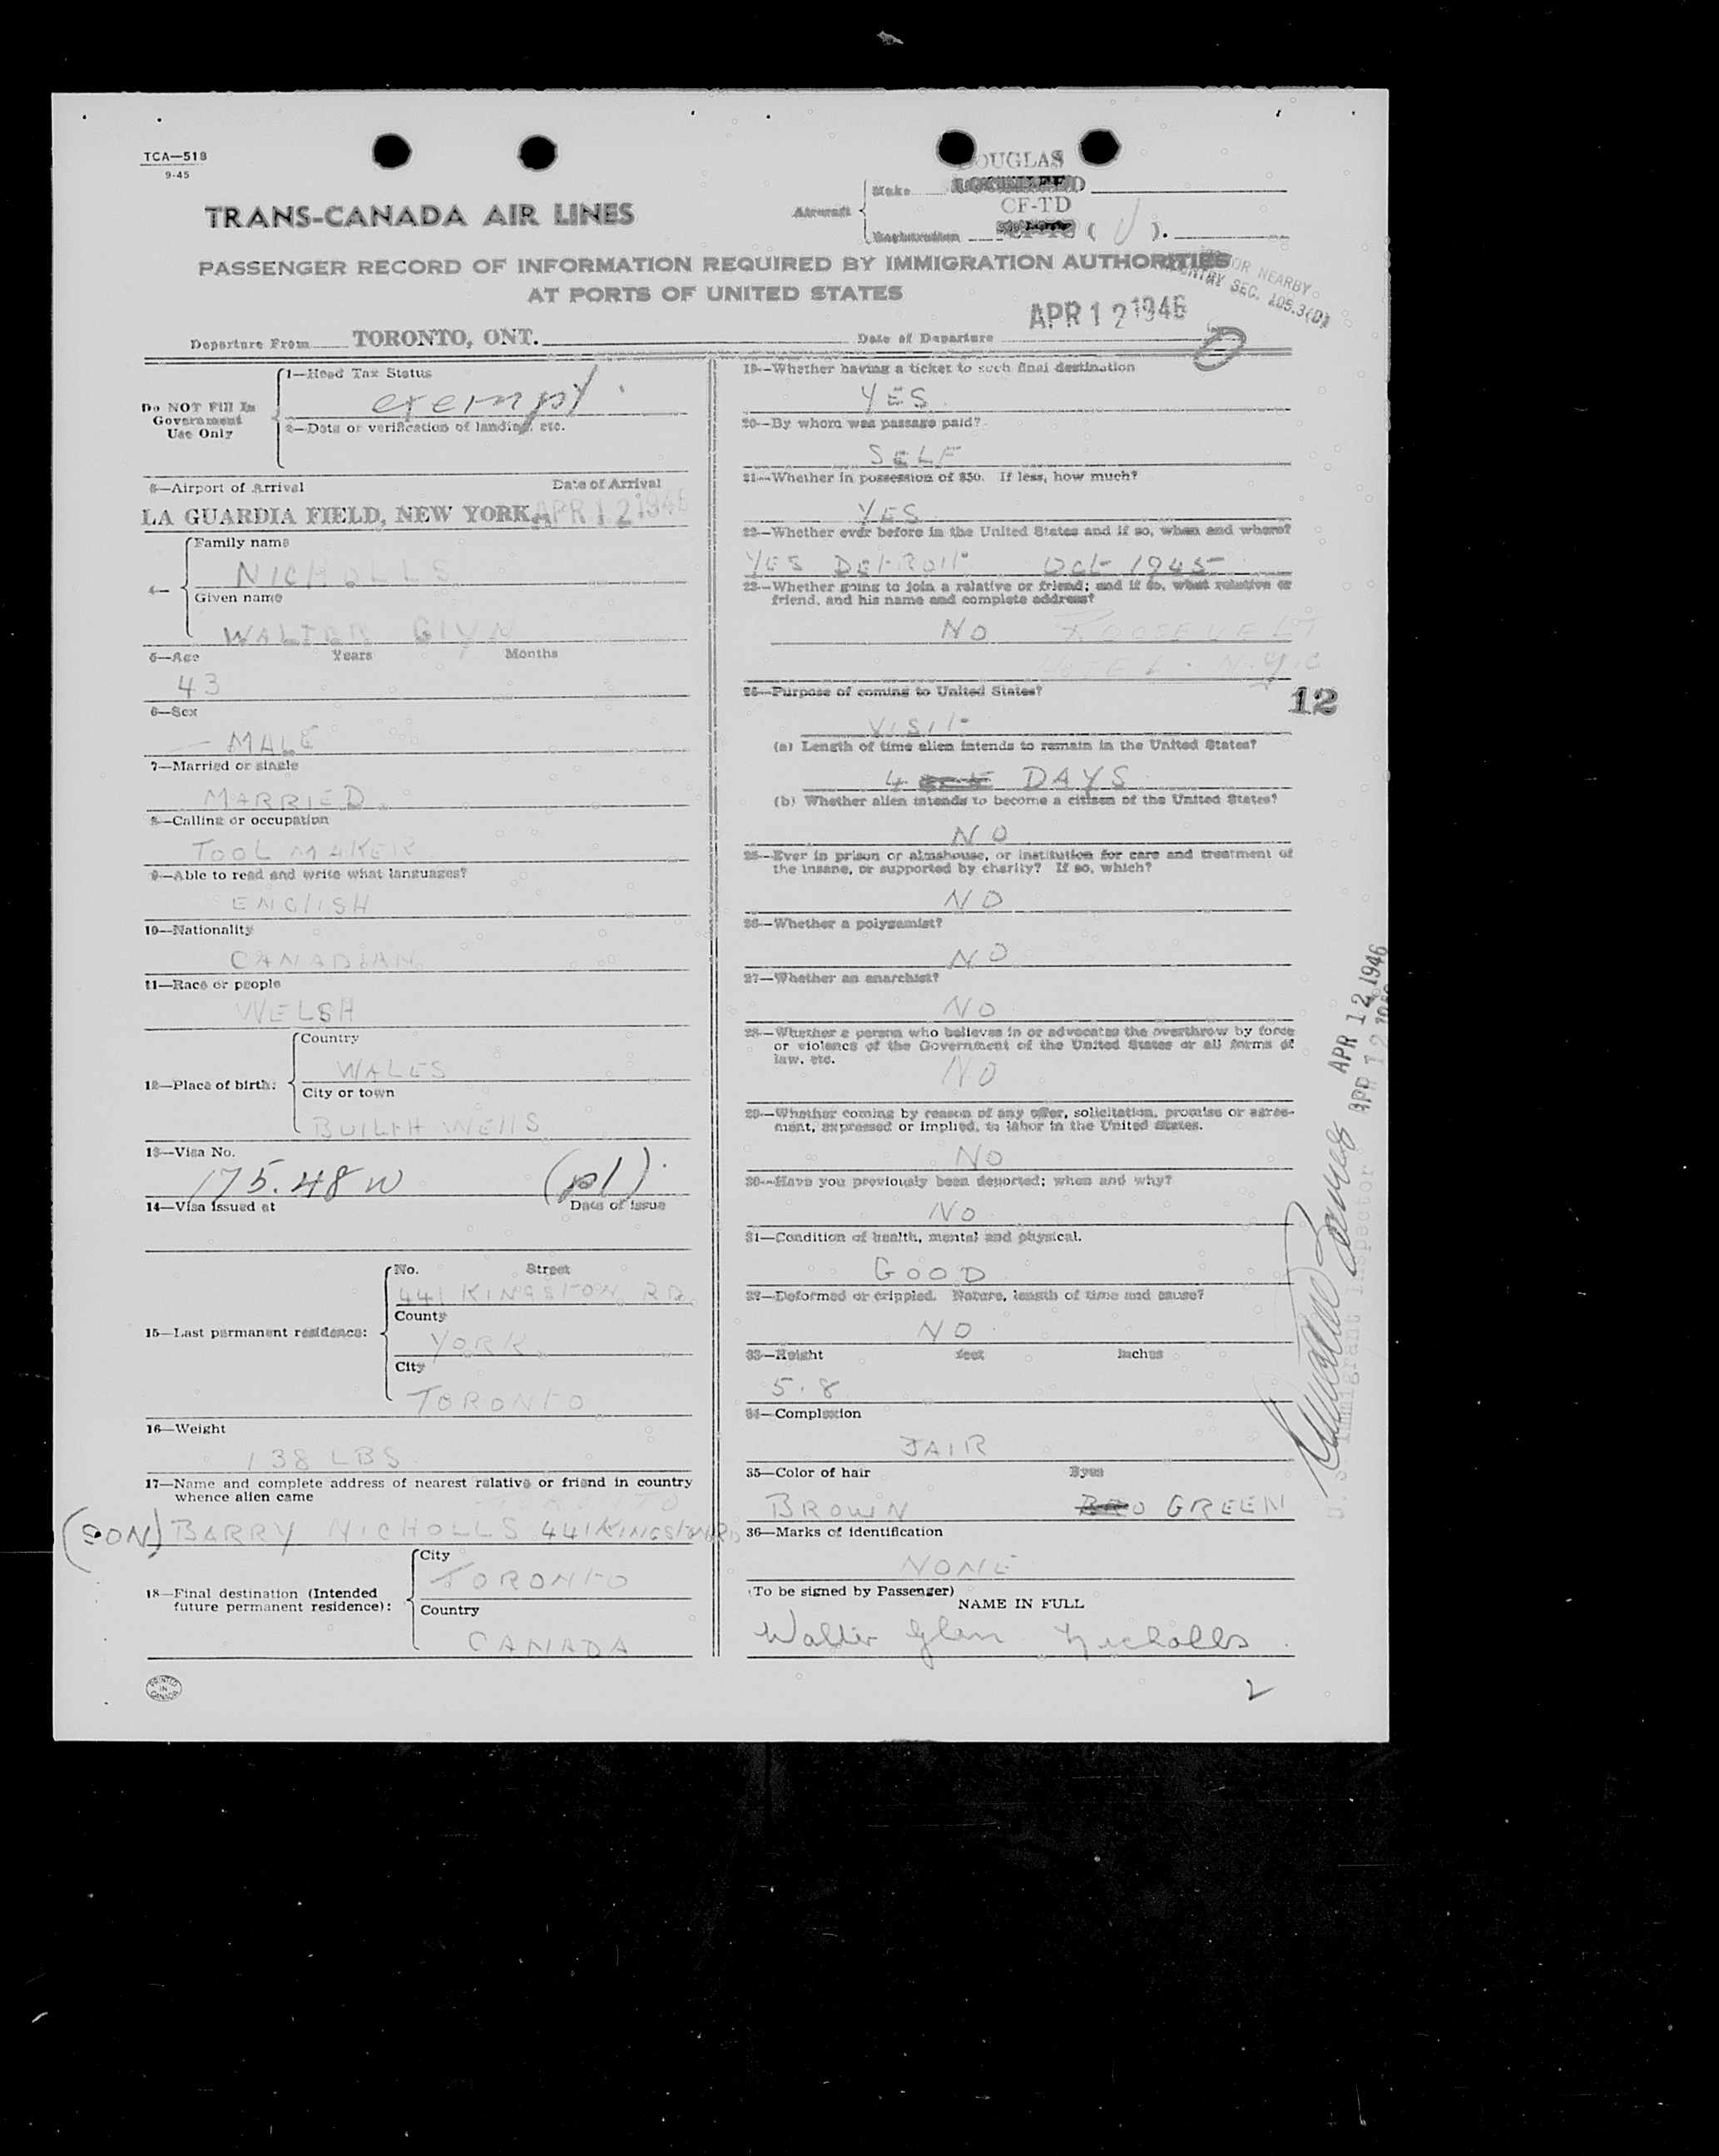 TCA—518
9-45
DOUGLAS
Make
CF-TD
Aircraft
Registration ( U ).
TRANS-CANADA AIR LINES
PASSENGER RECORD OF INFORMATION REQUIRED BY IMMIGRATION AUTHORITIES
AT PORTS OF UNITED STATES
OR NEARBY
ENTRY SEC. 105.3(D)
Departure From TORONTO, ONT. Date of Departure APR 12 1946
Do NOT Fill In
Government
Use Only
1—Head Tax Status
exempt
2—Data or verification of landing, etc.
3—Airport of Arrival Date of Arrival
LA GUARDIA FIELD, NEW YORK APR 12 1946
4—
Family name
NICHOLLS
Given name
WALTER GLYN
5—Age Years Months
43
6—Sex
MALE
7—Married or single
MARRIED
8—Calling or occupation
TOOL MAKER
9—Able to read and write what languages?
ENGLISH
10—Nationality
CANADIAN
11—Race or people
WELSH
12—Place of birth:
Country
WALES
City or town
BUILTH WELLS
13—Visa No.
175.48 W (p1)
14—Visa issued at Date of issue
15—Last permanent residence:
No. Street
441 KINGSTON RD.
County
YORK
City
TORONTO
16—Weight
138 LBS
17—Name and complete address of nearest relative or friend in country
whence alien came
TORONTO
(SON) BARRY NICHOLLS 441 KINGSTON RD
18—Final destination (Intended
future permanent residence):
City
TORONTO
Country
CANADA
PRINTED IN CANADA
19—Whether having a ticket to such final destination
YES
20—By whom was passage paid?
SELF
21—Whether in possession of $50. If less, how much?
YES
22—Whether ever before in the United States and if so, when and where?
YES DETROIT OCT 1945
23—Whether going to join a relative or friend; and if so, what relative or
friend, and his name and complete address?
NO ROOSEVELT
HOTEL. N.Y.C
24—Purpose of coming to United States?
12
VISIT
(a) Length of time alien intends to remain in the United States?
4 DAYS
(b) Whether alien intends to become a citizen of the United States?
NO
25—Ever in prison or almshouse, or institution for care and treatment of
the insane, or supported by charity? If so, which?
NO
26—Whether a polygamist?
NO
27—Whether an anarchist?
NO
28—Whether a person who believes in or advocates the overthrow by force
or violence of the Government of the United States or all forms of
law, etc.
NO
29—Whether coming by reason of any offer, solicitation, promise or agree-
ment, expressed or implied, to labor in the United States.
NO
30—Have you previously been deported; when and why?
NO
31—Condition of health, mental and physical.
GOOD
32—Deformed or crippled. Nature, length of time and cause?
NO
33—Height feet inches
5.8
34—Complexion
FAIR
35—Color of hair Eyes
BROWN GREEN
36—Marks of identification
NONE
(To be signed by Passenger)
NAME IN FULL
Walter Glyn Nicholls
2
APR 12 1946
APR 12
U. S. Immigrant Inspector